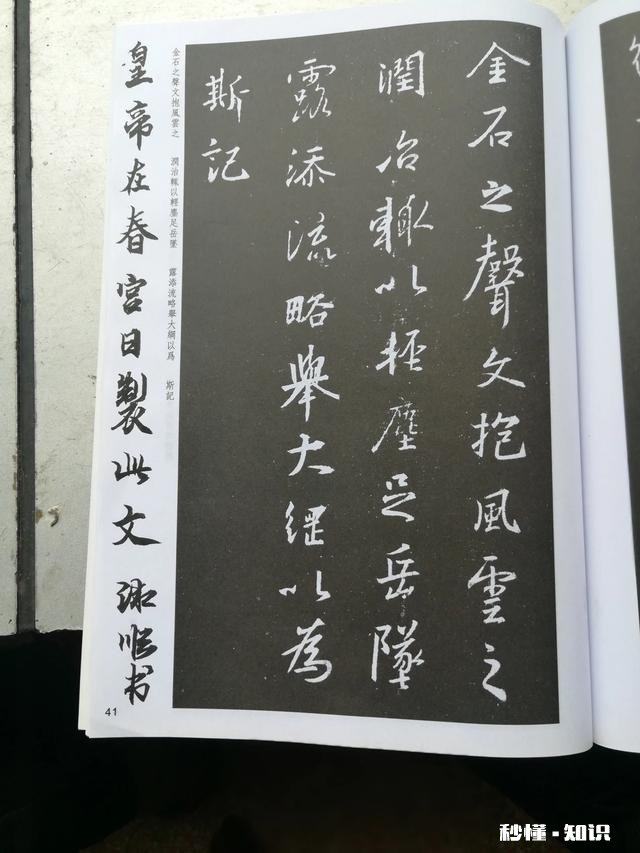 金石之聲文抱風雲之
潤治輒以輕塵足岳墜
露添流略舉大綱以爲
斯記
金石之聲文抱風雲之 潤治輒以輕塵足岳墜 露添流略舉大綱以爲 斯記
皇帝在春宮日製此文
书
41
秒懂·知识